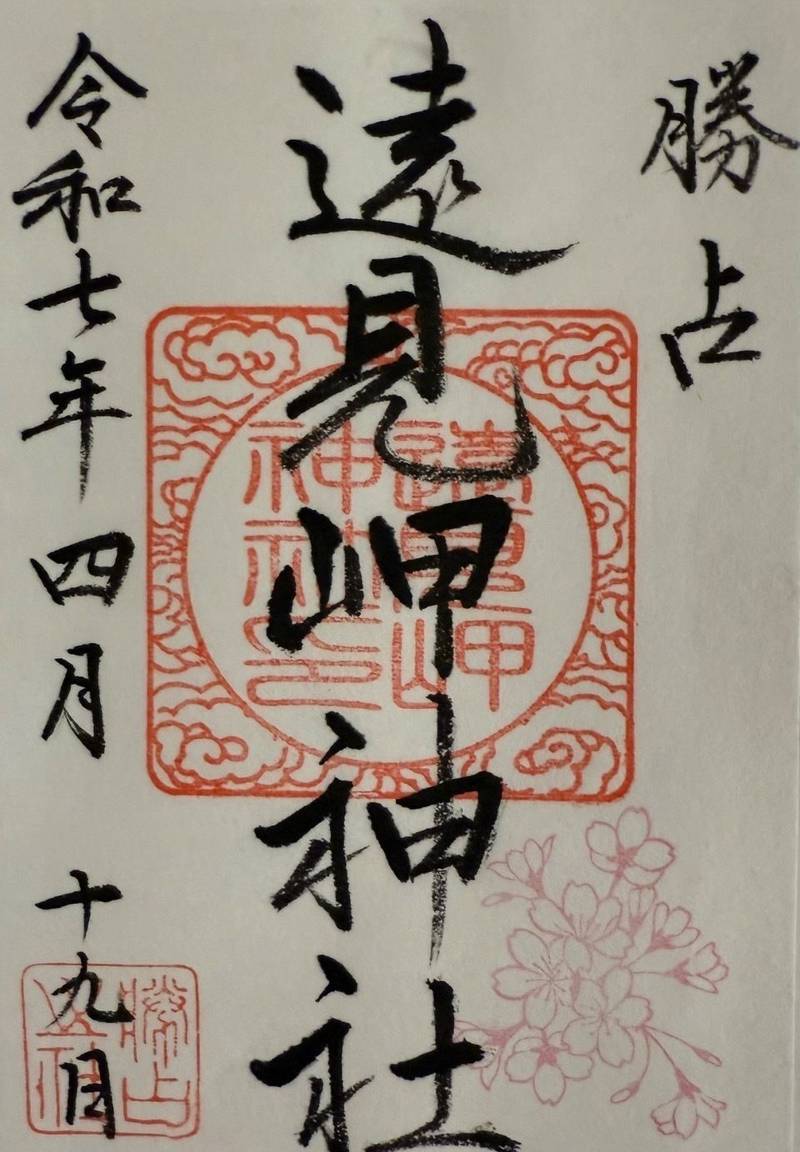 勝占
遠見岬神社
遠見岬
神社印
令和七年四月十九日
勝占